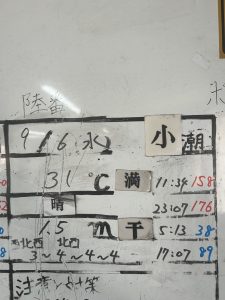 陸番
9/6 水 小潮
31℃ 満 11:34 158
晴 23:07 176
1.5m 干 5:13 38
北西 北西 17:07 89
3~4~4~4